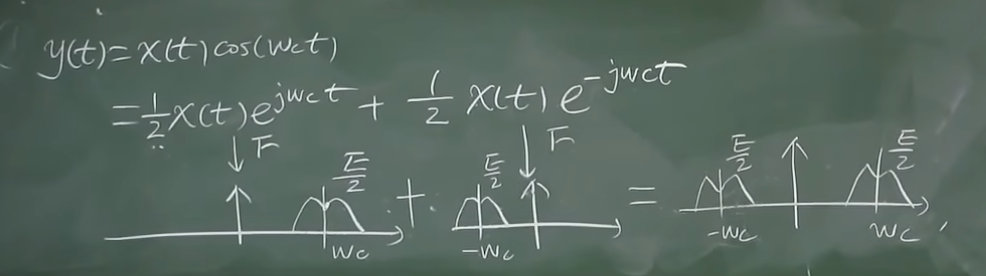 y(t)=x(t)cos(wct)
=1/2x(t)e^jwct + 1/2 x(t)e^-jwct
F F
E/2 + E/2 = E/2 E/2
wc -wc -wc wc